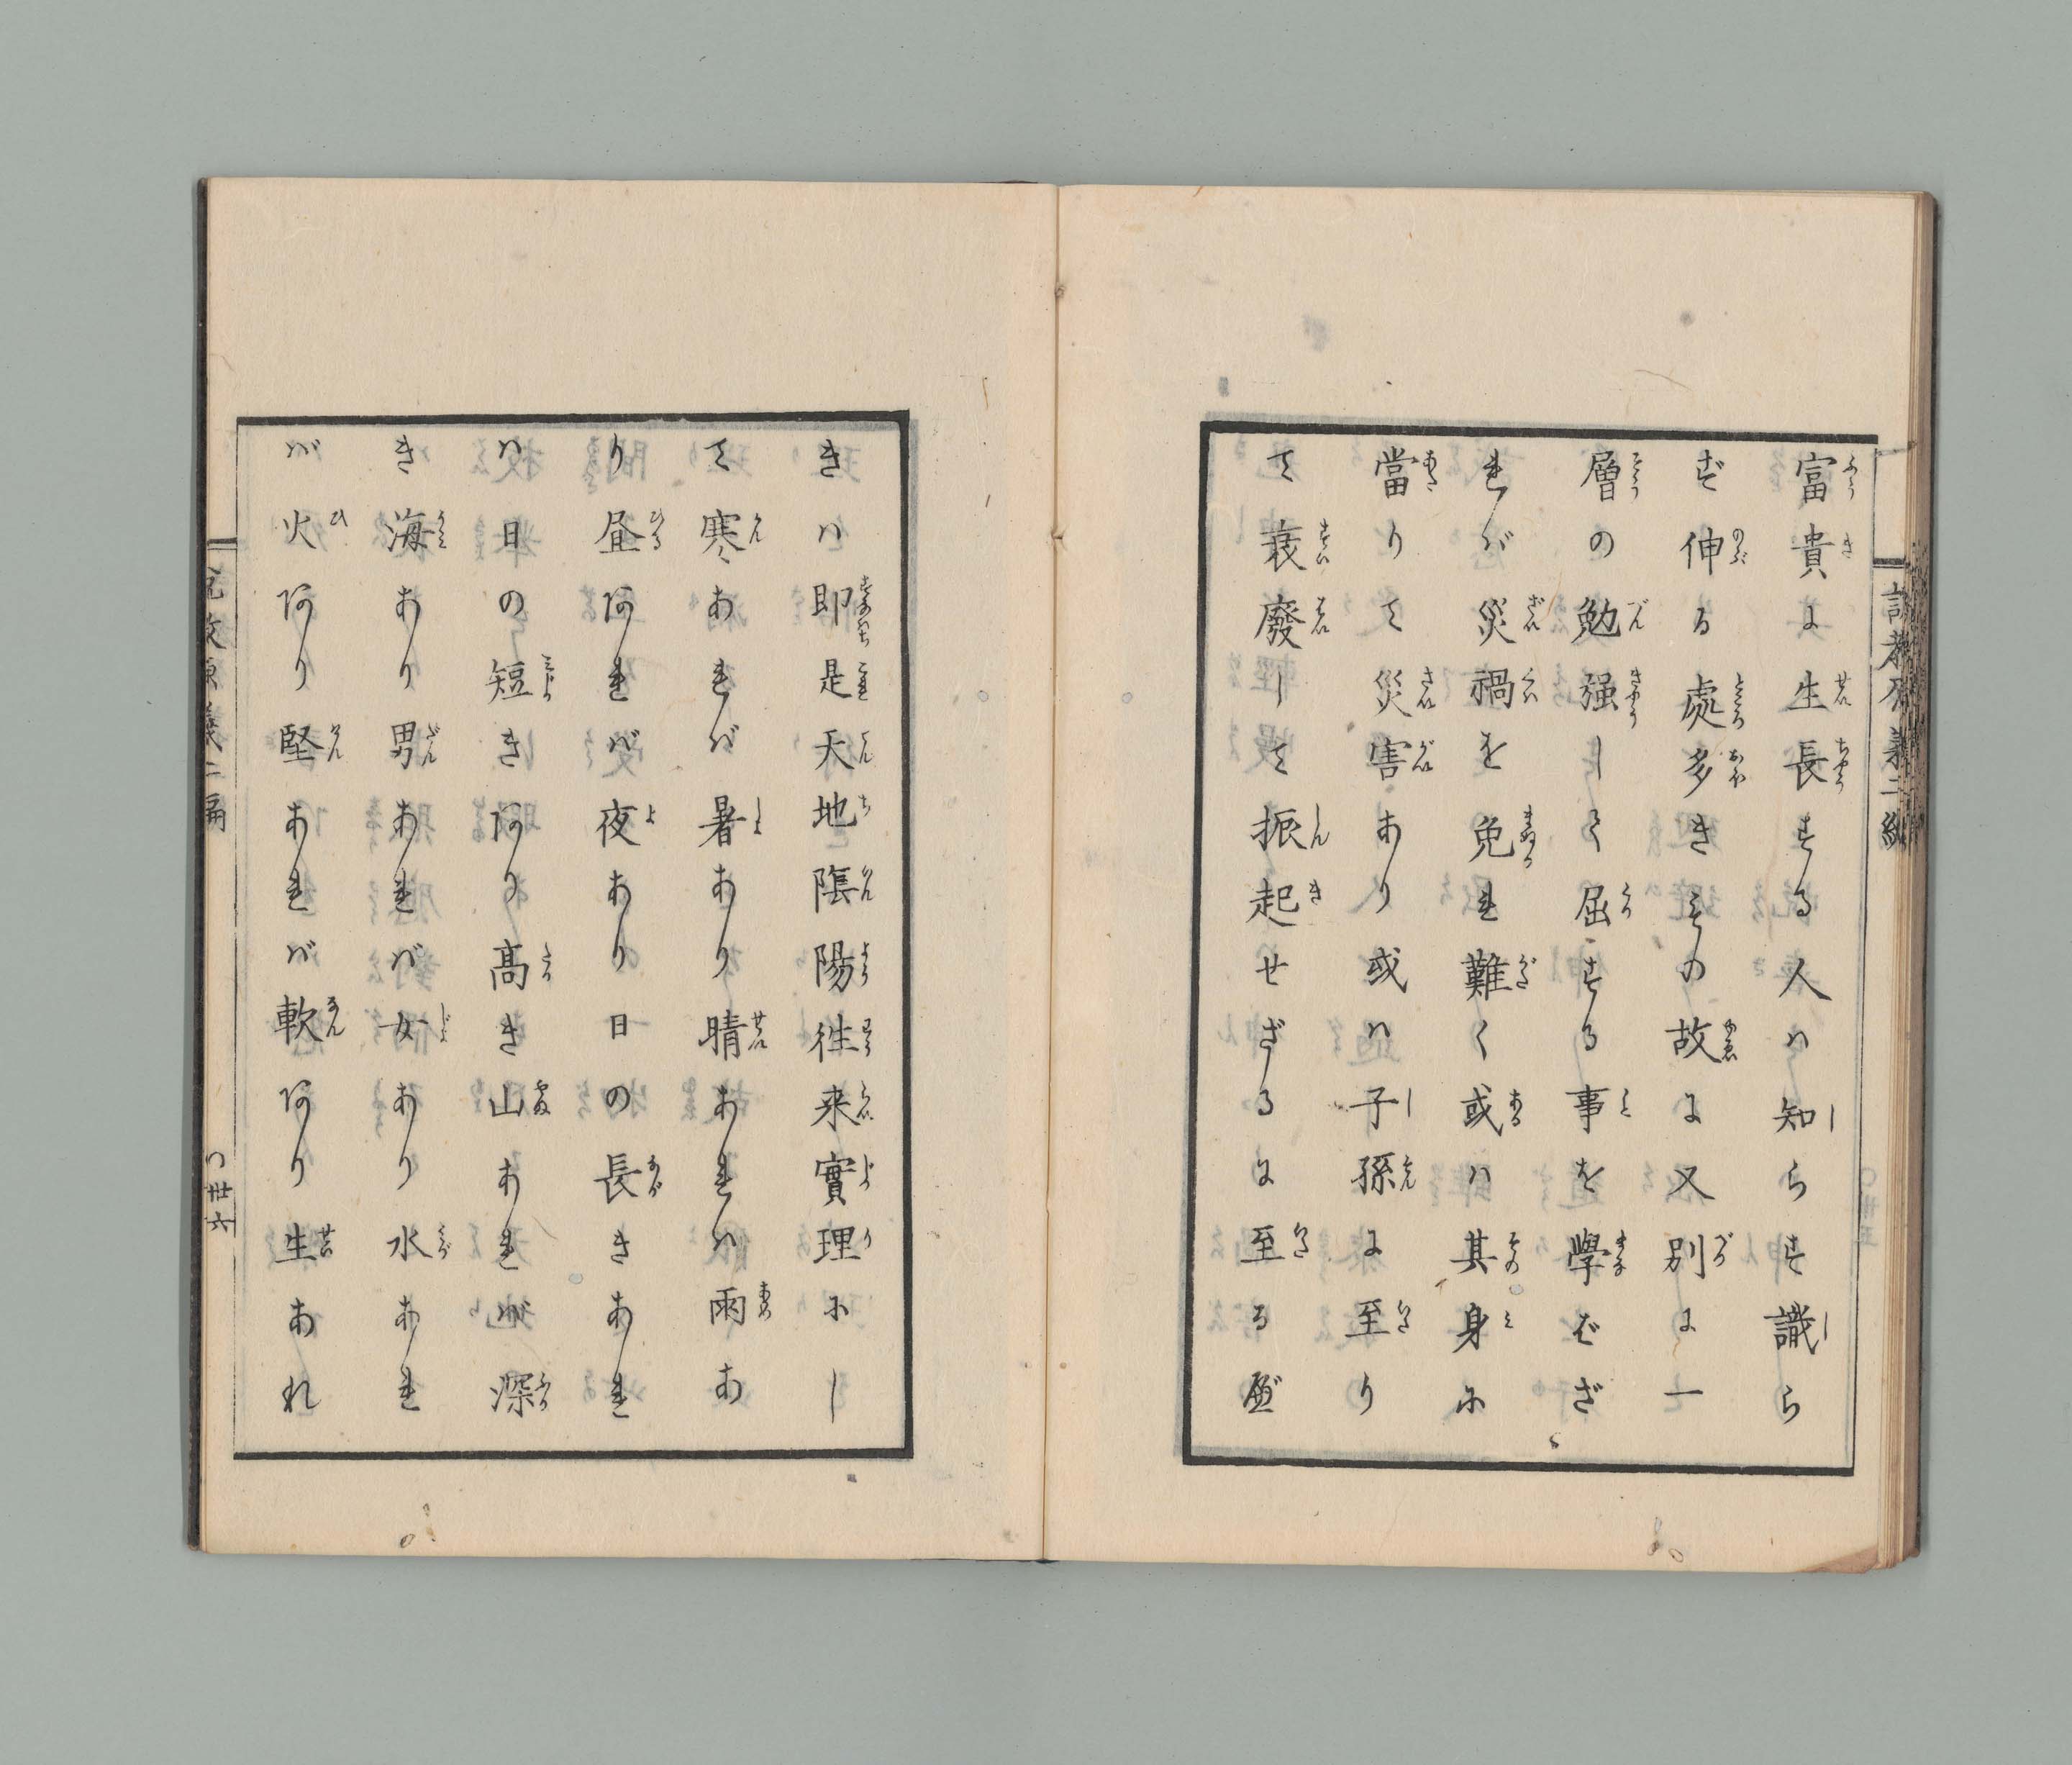 富貴に生長する人ハ知らす識ら
ず伸る處多きその故に又別に一
層の勉强して屈する事を學ばざ
れバ災禍を免れ難く或ハ其身に
當りて災害あり或ハ子孫に至り
て衰廢して振起せざるに至る歟
きハ即是天地陰陽徃来實理にし
て寒あれバ暑あり晴あれハ雨あ
り昼あれバ夜あり日の長きあれ
ハ日の短きあり高き山あれバ深
き海あり男あれバ女あり水あれ
バ火あり堅あれバ軟あり生あれ
説教原義二編
〇丗六